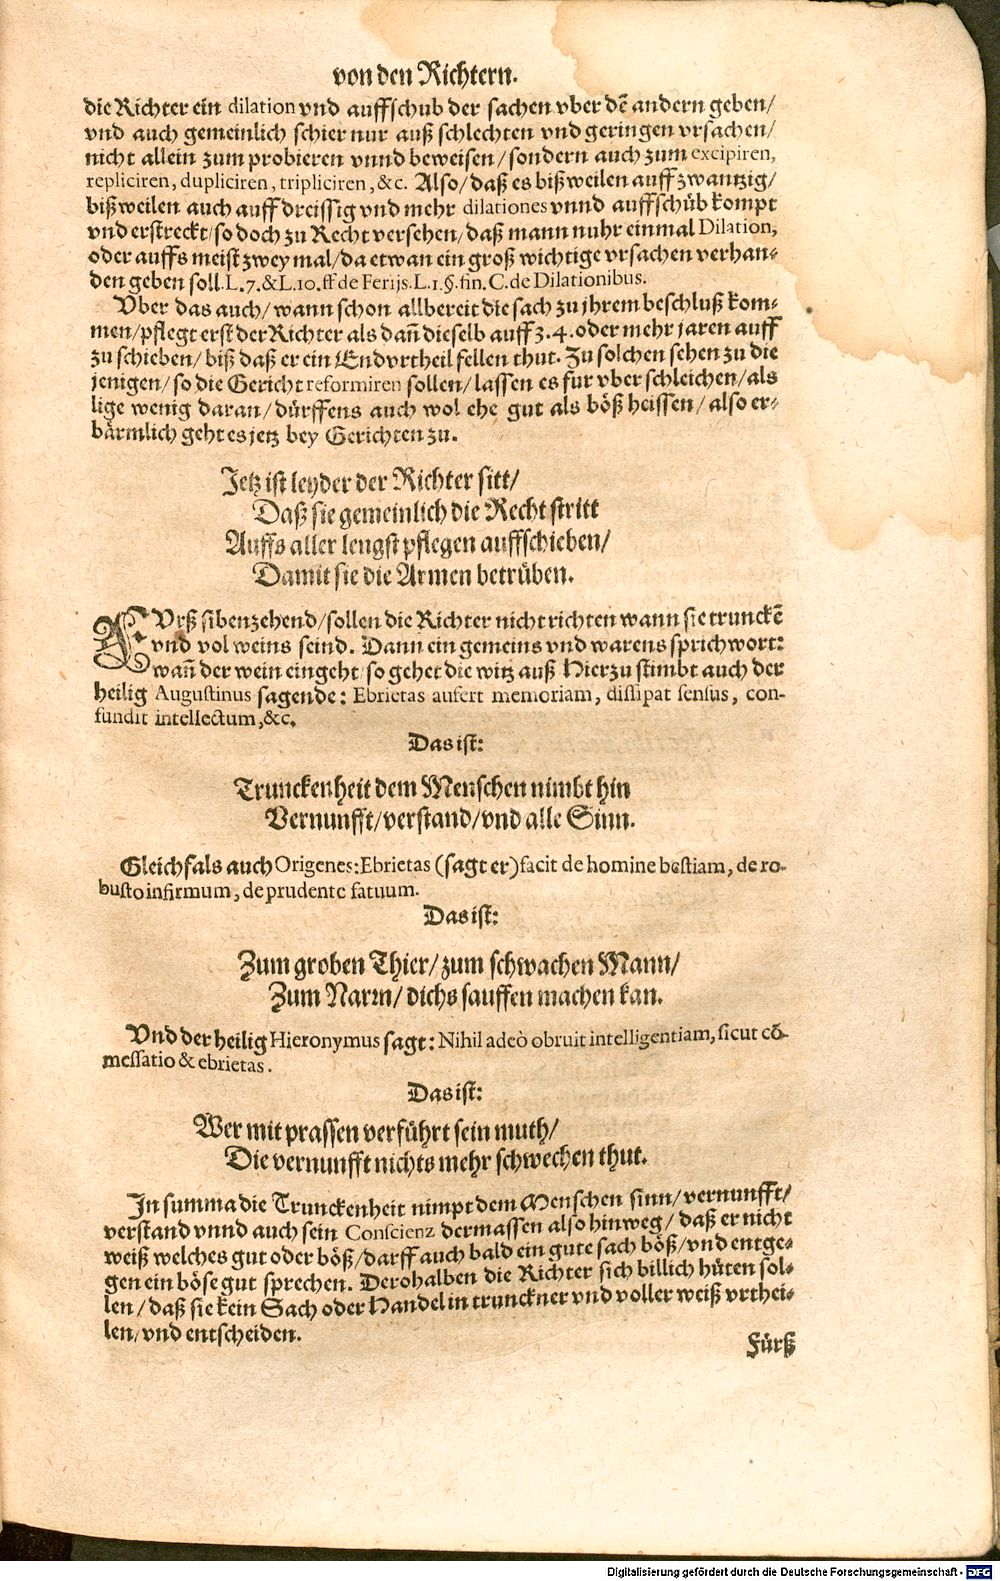 von den Richtern.
die Richter ein dilation vnd auffschub der sachen vber dē andern geben/
vnd auch gemeinlich schier nur auß schlechten vnd geringen vrsachen/
nicht allein zum probieren vnnd beweisen/ sondern auch zum excipiren,
repliciren, dupliciren, tripliciren, &c. Also/ daß es bißweilen auff zwantzig/
bißweilen auch auff dreissig vnd mehr dilationes vnnd auffschüb kompt
vnd erstreckt/ so doch zu Recht versehen/ daß mann nuhr einmal Dilation,
oder auffs meist zwey mal/ da etwan ein groß wichtige vrsachen verhan-
den geben soll. L. 7. & L. 10. ff de Ferijs. L. 1. §. fin. C. de Dilationibus.
Vber das auch/ wann schon allbereit die sach zu jhrem beschluß kom-
men/ pflegt erst der Richter als dañ dieselb auff 3. 4. oder mehr jaren auff
zu schieben/ biß daß er ein Endvrtheil fellen thut. Zu solchen sehen zu die
jenigen/ so die Gericht reformiren sollen/ lassen es fur vber schleichen/ als
lige wenig daran/ dürffens auch wol ehe gut als böß heissen/ also er-
bärmlich geht es jetz bey Gerichten zu.
Jetz ist leyder der Richter sitt/
Daß sie gemeinlich die Recht stritt
Auffs aller lengst pflegen auffschieben/
Damit sie die Armen betrüben.
FVrß sibenzehend/ sollen die Richter nicht richten wann sie trunckē
vnd vol weins seind. Dann ein gemeins vnd warens sprichwort:
wañ der wein eingeht/ so gehet die witz auß Hierzu stimbt auch der
heilig Augustinus sagende: Ebrietas aufert memoriam, dissipat sensus, con-
fundit intellectum, &c.
Das ist:
Trunckenheit dem Menschen nimbt hin
Vernunfft/ verstand/ vnd alle Sinn.
Gleichfals auch Origenes: Ebrietas (sagt er) facit de homine bestiam, de ro-
busto infirmum, de prudente fatuum.
Das ist:
Zum groben Thier/ zum schwachen Mann/
Zum Narrn/ dichs sauffen machen kan.
Vnd der heilig Hieronymus sagt: Nihil adeò obruit intelligentiam, sicut cō-
messatio & ebrietas.
Das ist:
Wer mit prassen verführt sein muth/
Die vernunfft nichts mehr schwechen thut.
In summa die Trunckenheit nimpt dem Menschen sinn/ vernunfft/
verstand vnnd auch sein Conscienz dermassen also hinweg/ daß er nicht
weiß welches gut oder böß/ darff auch bald ein gute sach böß/ vnd entge-
gen ein böse gut sprechen. Derohalben die Richter sich billich hüten sol-
len/ daß sie kein Sach oder Handel in trunckner vnd voller weiß vrthei-
len/ vnd entscheiden.
Fürß
Digitalisierung gefördert durch die Deutsche Forschungsgemeinschaft - DFG